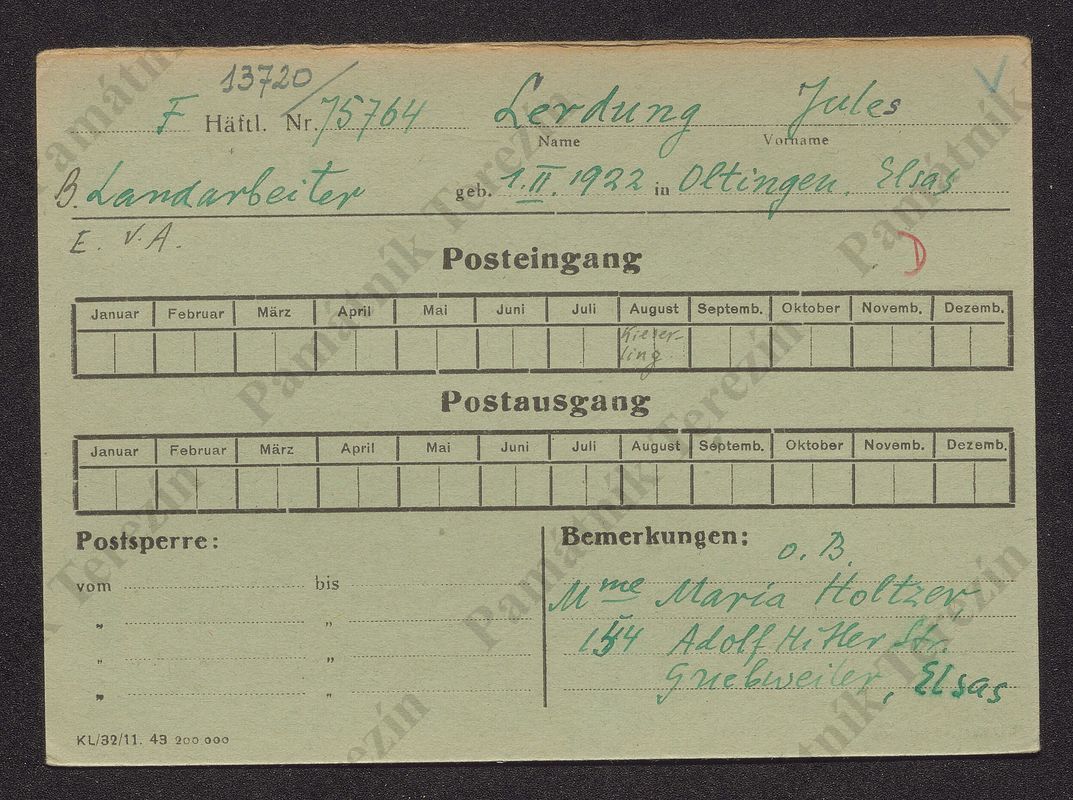 13720
F Häftl. Nr. 75764 Lerdung Jules
Name Vorname
B. Landarbeiter geb. 1. II. 1922 in Oltingen. Elsas
E. V. A.
D
Posteingang
Januar Februar März April Mai Juni Juli August Septemb. Oktober Novemb. Dezemb.
Kieser-
ling
Postausgang
Januar Februar März April Mai Juni Juli August Septemb. Oktober Novemb. Dezemb.
Postsperre: Bemerkungen: o. B.
vom bis
Mme Maria Holtzer
" "
Adolf Hitler Str.
" "
Guebweiler, Elsas
" "
KL/32/11. 43 200 000
Památník Terezín
Památník Terezín
Památník Terezín
Památník Terezín